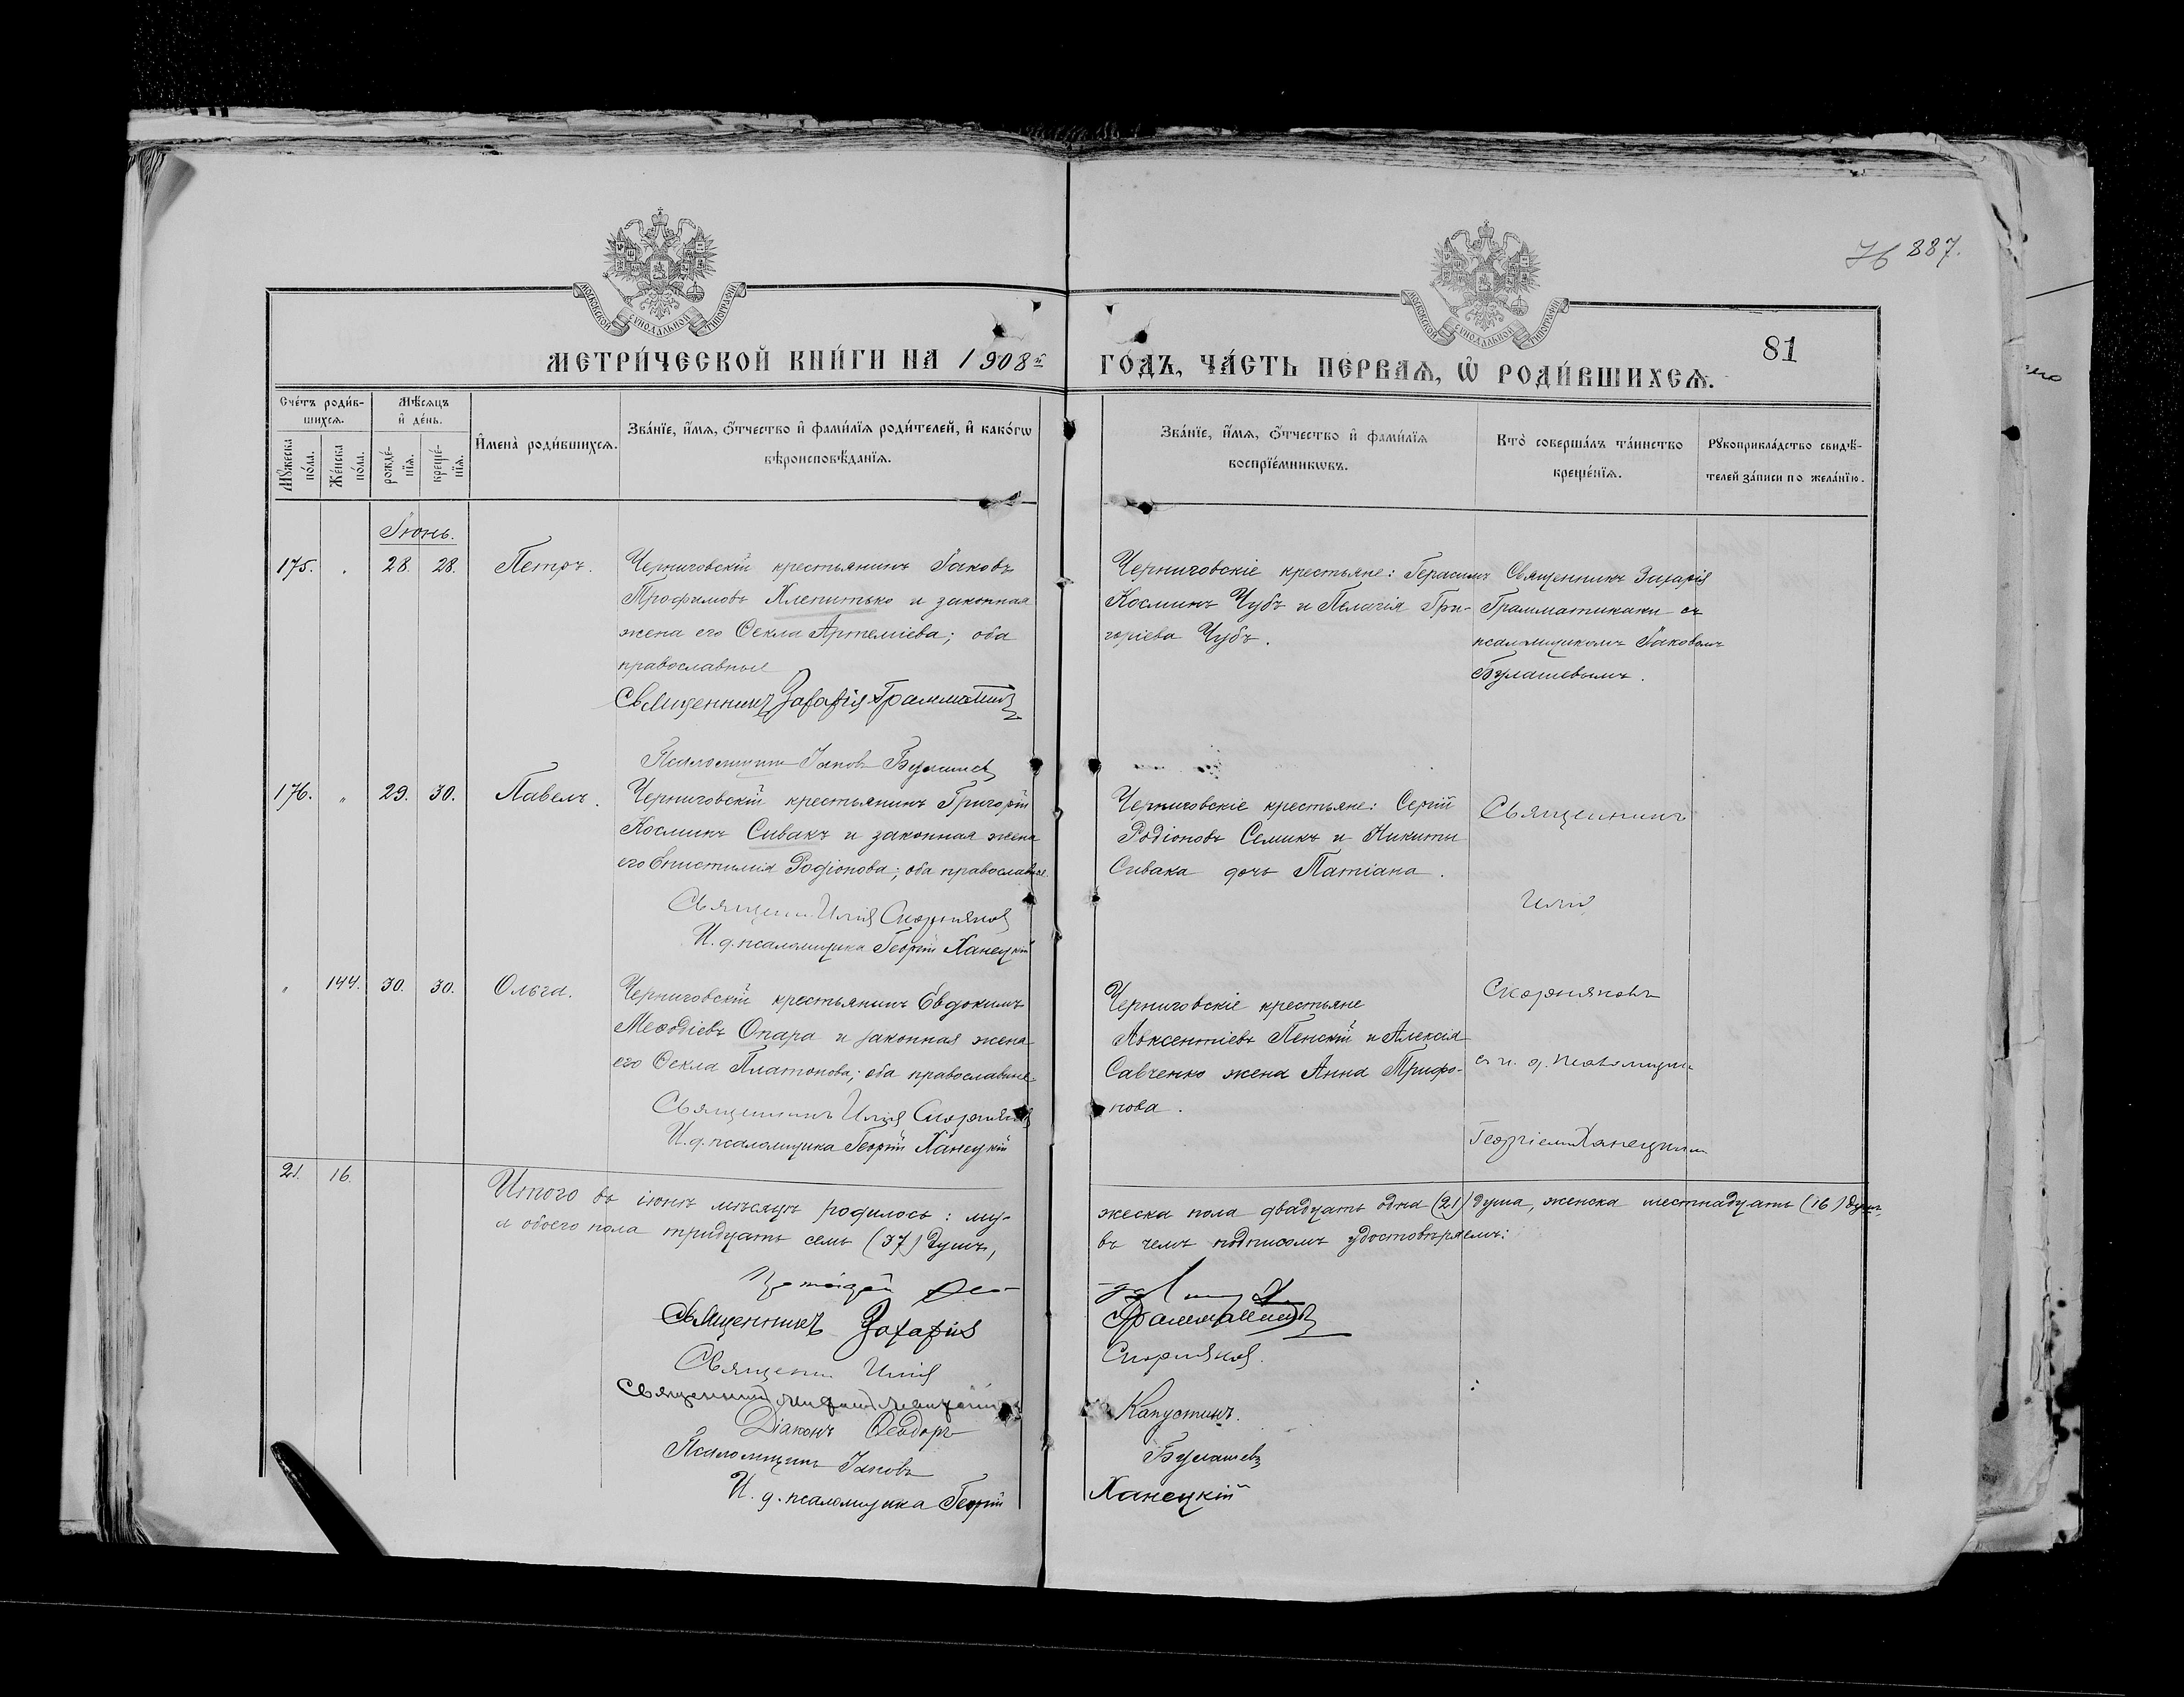 887.
МОСКОВСКОЙ СУНОДАЛЬНОЙ ТИПОГРАФІИ
МОСКОВСКОЙ СУНОДАЛЬНОЙ ТИПОГРАФІИ
81
МЕТРИ́ЧЕСКОЙ КНИ́ГИ НА 1908й ГО́ДЪ, ЧА́СТЬ ПЕ́РВАЯ, Ѡ҆ РОДИ́ВШИХСЯ.
Сче́тъ роди́в-
шихся.
Мѣ́сяцъ
и҆ де́нь.
Мꙋ́жеска по́ла.
Же́нска по́ла.
рожде́-
нїя.
креще́-
нїя.
И҆мена̀ роди́вшихся.
Зва́нїе, и҆́мя, ѻ҆́тчество и҆ фами́лїя роди́телей, и҆ како́гѡ
вѣроисповѣ́данїя.
Зва́нїе, и҆́мя, ѻ҆́тчество и҆ фами́лїя
воспрїе́мникѡвъ.
Кто̀ соверша́лъ та́инство
креще́нїя.
Рꙋкоприкла́дство свидѣ́-
телей за́писи по жела́нїю.
Іюнь.
175. 28. 28. Петръ.
Черниговскій крестьянинъ Іаковъ
Трофимовъ Хлепитько и законная
жена его Ѳекла Артеміева; оба
православные
Священникъ Захарія Грамматикаки
Псаломщикъ Іаковъ Булашевъ
Черниговскіе крестьяне: Герасимъ
Косминъ Чубъ и Пелагія Гри-
горіева Чубъ.
Священникъ Захарія
Грамматикаки съ
псаломщикомъ Іаковомъ
Булашевымъ.
176. „ 29. 30. Павелъ.
Черниговскій крестьянинъ Григорій
Косминъ Сивакъ и законная жена
его Епистимія Родіонова; оба православные.
Священн. Илія Скорняковъ
И. д. псаломщика Георгій Ханецкій
Черниговскіе крестьяне: Сергій
Родіоновъ Семикъ и Никиты
Сивака дочь Татіана.
Священникъ
Илія
„ 144. 30. 30. Ольга.
Черниговскій крестьянинъ Евдокимъ
Меѳодіевъ Опара и законная жена
его Ѳекла Платонова; оба православные.
Священникъ Илія Скорняковъ
И. д. псаломщика Георгій Ханецкій
Черниговскіе крестьяне
Авксентіевъ Пенскій и Алексія
Савченко жена Анна Трифо-
нова.
Скорняковъ
съ и. д. псаломщика
Георгіемъ Ханецкимъ
21. 16.
Итого въ іюнѣ мѣсяцѣ родилось: му-
жеска пола двадцать одна (21) душа, женска шестнадцать (16) душъ,
и обоего пола тридцать семь (37) душъ,
въ чемъ подписомъ удостовѣряемъ:
Священникъ Захарія Грамматикаки
Священн. Илія Скорняковъ.
Священникъ
Діаконъ Ѳеодоръ Капустинъ.
Псаломщикъ Іаковъ Булашевъ
И. д. псаломщика Георгій Ханецкій